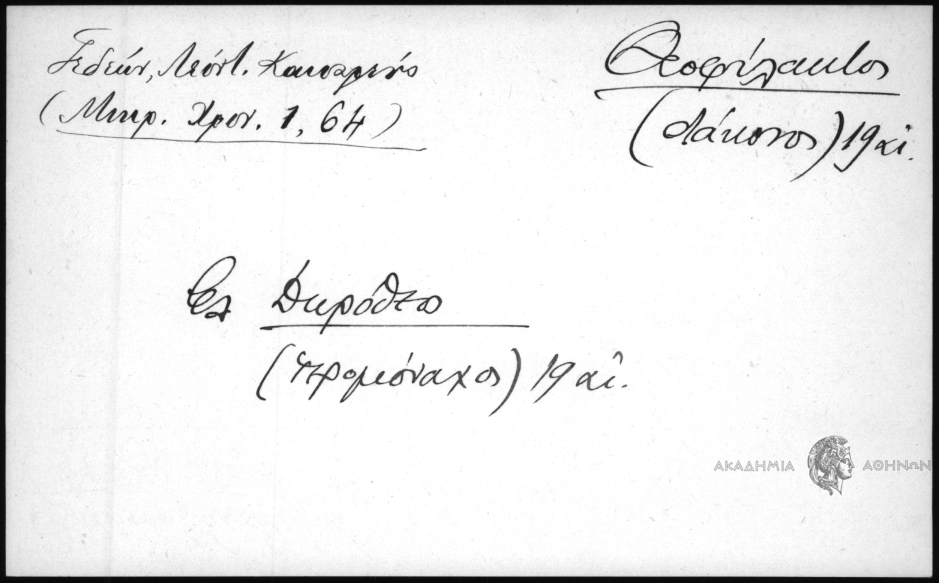 Γεδεών, Λεόντ. Καισαρεύς
(Μικρ. Χρον. 1, 64)
Θεοφύλακτος
(διάκονος) 19 αἰ.
Βλ.
(ἱερομόναχος) 19 αἰ.
ΑΚΑΔΗΜΙΑ ΑΘΗΝΩΝ